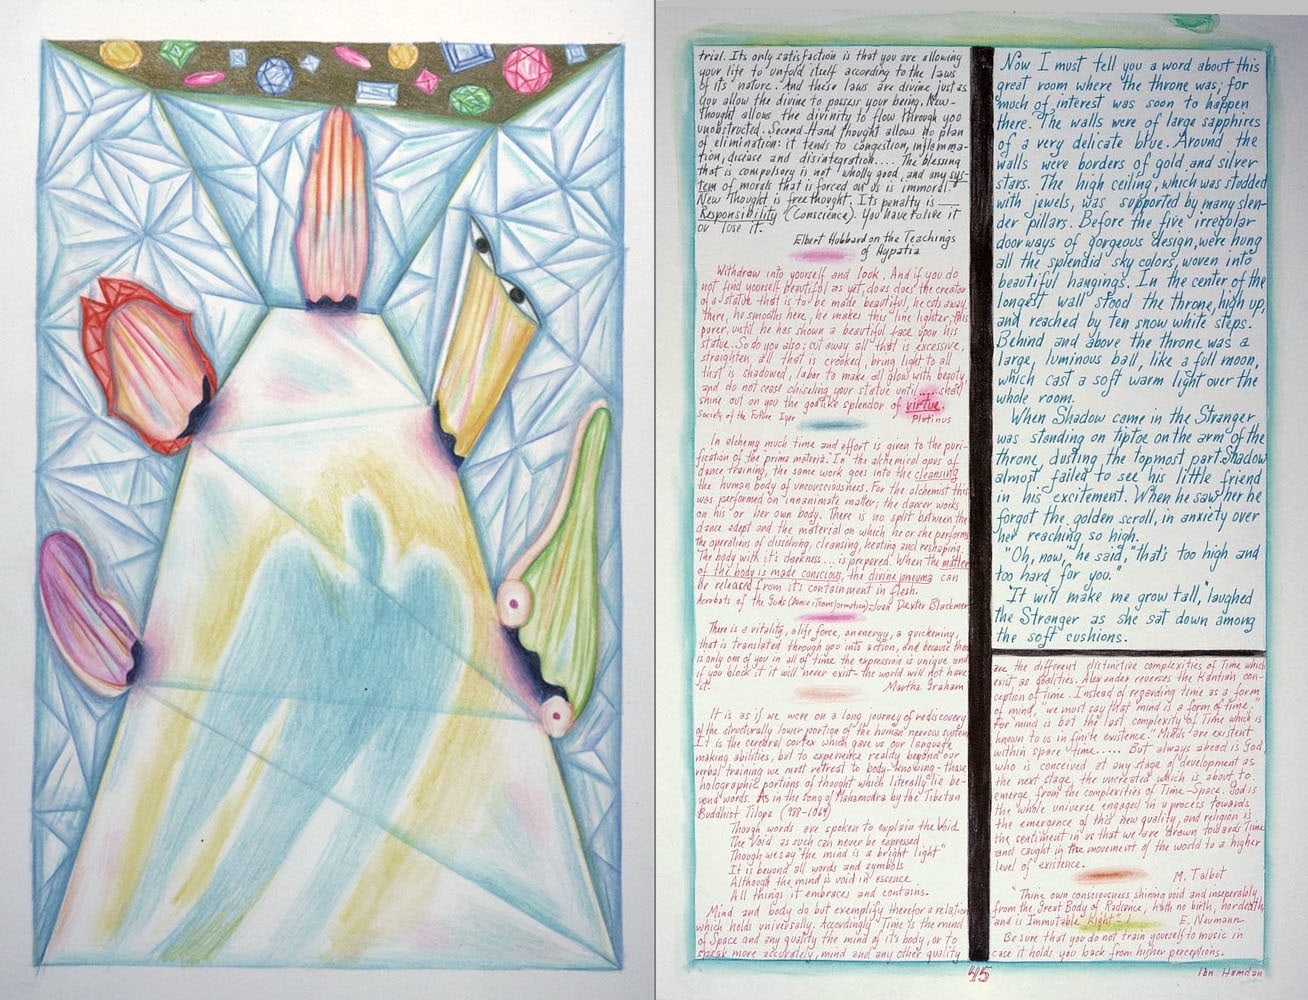 trial. Its only satisfaction is that you are allowing
your life to unfold itself according to the laws
of its nature. And these laws are divine just as
you allow the divine to posses your being. New-
thought allows the divinity to flow through you
unobstructed. Second Hand thought allows no plan
of elimination: it tends to congestion, inflamma-
tion, disease and disintegration.... The blessing
that is compulsory is not wholly good, and any sys-
tem of morals that is forced on us is immoral.
New Thought is free thought. Its penalty is
Responsibility (Conscience). You have to live it
or lose it.
Elbert Hubbard on the Teachings
of Hypatia
Withdraw into yourself and look. And if you do
not find yourself beautiful as yet, do as does the creator
of a statue that is to be made beautiful, he cuts away
there, he smooths here, he makes this line lighter, this
purer, until he has shown a beautiful face upon his
statue. So do you also; cut away all that is excessive,
straighten all that is crooked, bring light to all
that is shadowed, labor to make all glow with beauty,
and do not cease chiseling your statue until.... shall
shine out on you the godlike splendor of virtue.
Society of the Future Plotinus
In alchemy much time and effort is given to the puri-
fication of the prima materia." In the alchemical opus of
dance training, the same work goes into the cleansing
the human body of unconsciousness. For the alchemist this
was performed on innanimate matter; the dancer works
on his or her own body. There is no split between the
dance adept and the material on which he or she performs
the operations of dissolving, cleansing, heating and reshaping.
The body with it's darkness ... is prepared. When the matter
of the body is made conscious, the divine pneuma can
be released from its containment in flesh.
Acrobats of the Gods (Dance & Transformation) - Joan Dexter Blackmer
There is a vitality, a life force, an energy, a quickening,
that is translated through you into action, and because there
is only one of you in all of time the expression is unique and
if you block it it will never exist - the world will not have
it. Martha Graham
It is as if we were on a long journey of rediscovery
of the structurally lower portion of the human nervous system
It is the cerebral cortex which gave us our language
making abilities, but to experience reality beyond our
verbal training we must retreat to body-knowing - those
holographic portions of thought which literally lie be-
yond words. As in the song of Mahamudra by the Tibetan
Buddhist Tilopa (988-1069)
Though words are spoken to explain the Void
The Void as such can never be expressed
Though we say "the mind is a bright light"
It is beyond all words and symbols
Although the mind is void in essence
All things it embraces and contains.
Mind and body do but exemplify therefor a relation
which holds universally. Accordingly Time is the mind
of Space and any quality the mind of its body, or to
speak more accurately, mind and any other quality
Now I must tell you a word about this
great room where the throne was, for
much of interest was soon to happen
there. The walls were of large sapphires
of a very delicate blue. Around the
walls were borders of gold and silver
stars. The high ceiling, which was studded
with jewels, was supported by many slen-
der pillars. Before the five irregular
doorways of gorgeous design, were hung
all the splendid sky colors, woven into
beautiful hangings. In the center of the
longest wall stood the throne, high up,
and reached by ten snow white steps.
Behind and above the throne was a
large, luminous ball, like a full moon,
which cast a soft warm light over the
whole room.
When Shadow came in the Stranger
was standing on tiptoe on the arm of the
throne dusting the topmost part. Shadow
almost failed to see his little friend
in his excitement. When he saw her he
forgot the golden scroll, in anxiety over
her reaching so high.
"Oh, now," he said, "that's too high and
too hard for you."
"It will make me grow tall," laughed
the Stranger as she sat down among
the soft cushions.
are the different distinctive complexities of Time which
exist as qualities. Alexander reverses the Kantian con-
ception of time. Instead of regarding time as a form
of mind, "we must say that mind is a form of time."
For mind is but the last complexity of Time which is
known to us in finite existence." Minds are existent
within space time..... But always ahead is God,
who is conceived at any stage of development as
the next stage, the uncreated which is about to
emerge from the complexities of Time-Space. God is
the whole universe engaged in a process towards
the emergence of this new quality, and religion is
the sentiment in us that we are drawn towards Time
and caught in the movement of the world to a higher
level of existence.
M. Talbot
"Thine own consciousness shining void and inseperably
from the Great Body of Radiance, hath no birth, nor death,
and is Immutable Light-! E. Neumann
Be sure that you do not train yourself to music in
case it holds you back from higher perceptions.
Ibn Hamdan
45